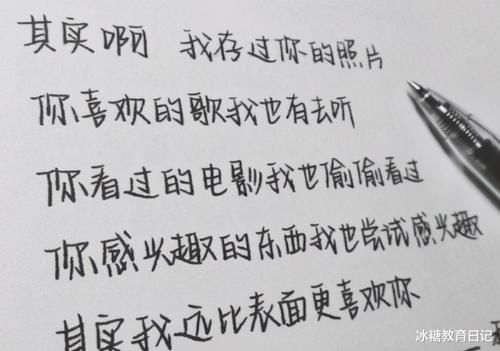 其实啊 我存过你的照片
你喜欢的歌我也有去听
你看过的电影我也偷偷看过
你感兴趣的东西我也尝试感兴趣
其实我远比表面更喜欢你
冰糖教育日记